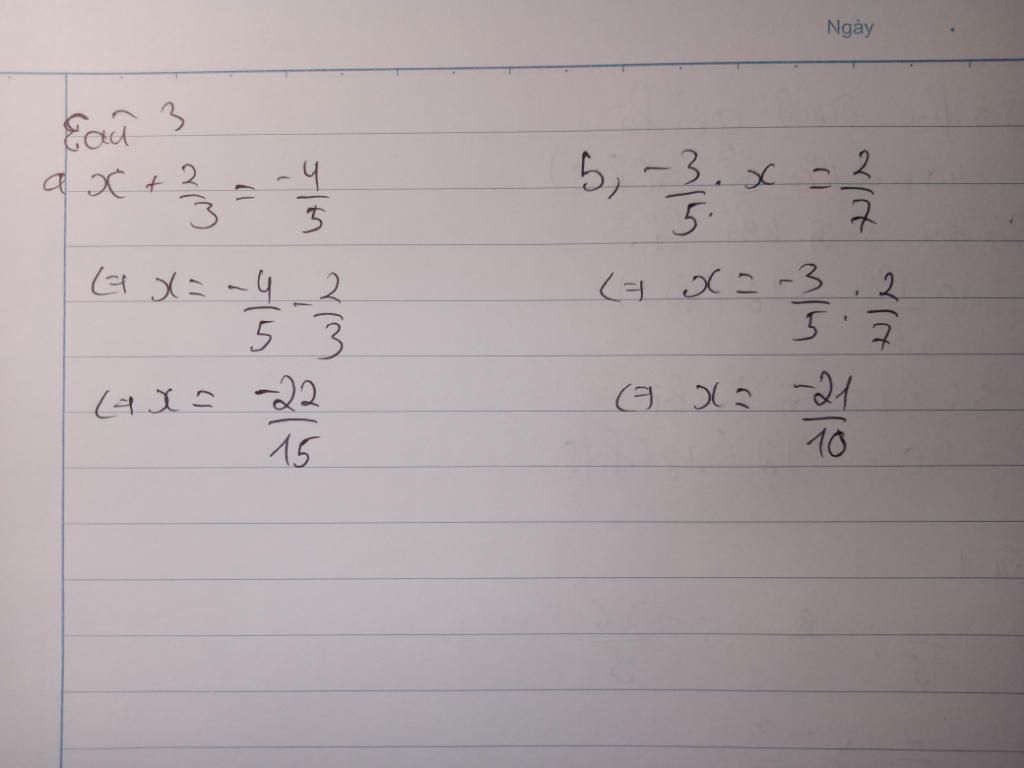 Ngày
Bài 3
a x + 2/3 = -4/5
<=> x = -4/5 - 2/3
<=> x = -22/15
b, -3/5 . x = 2/7
<=> x = -3/5 . 2/7
<=> x = -21/10